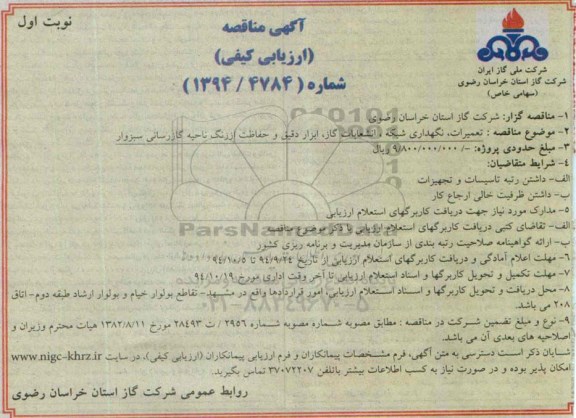 نوبت اول
آگهی مناقصه
(ارزیابی کیفی)
شماره ( ۴۷۸۴ / ۱۳۹۴ )
شرکت ملی گاز ایران
شرکت گاز استان خراسان رضوی
(سهامی خاص)
۱- مناقصه گزار: شرکت گاز استان خراسان رضوی
۲- موضوع مناقصه : تعمیرات، نگهداری شبکه ، انشعابات گاز، ابزار دقیق و حفاظت اززنگ ناحیه گازرسانی سبزوار
۳- مبلغ حدودی پروژه: -/ ۹/۸۰۰/۰۰۰/۰۰۰ ریال
۴- شرایط متقاضیان:
الف- داشتن رتبه تاسیسات و تجهیزات
ب- داشتن ظرفیت خالی ارجاع کار
۵- مدارک مورد نیاز جهت دریافت کاربرگهای استعلام ارزیابی
الف- تقاضای کتبی دریافت کاربرگهای استعلام ارزیابی با ذکر موضوع مناقصه
ب- ارائه گواهینامه صلاحیت رتبه بندی از سازمان مدیریت و برنامه ریزی کشور
۶- مهلت اعلام آمادگی و دریافت کاربرگهای استعلام ارزیابی از تاریخ ۹۴/۹/۲۴ تا ۹۴/۱۰/۵
۷- مهلت تکمیل و تحویل کاربرگها و اسناد استعلام ارزیابی تا آخر وقت اداری مورخ ۹۴/۱۰/۱۹
۸- محل دریافت و تحویل کاربرگها و اسناد استعلام ارزیابی، امور قراردادها واقع در مشهد- تقاطع بولوار خیام و بولوار ارشاد طبقه دوم- اتاق
۲۰۸ می باشد.
۹- نوع و مبلغ تضمین شرکت در مناقصه : مطابق مصوبه شماره مصوبه شماره ۲۹۵۶ / ت ۲۸۴۹۳ مورخ ۱۳۸۲/۸/۱۱ هیات محترم وزیران و
اصلاحیه های بعدی آن می باشد.
شایان ذکر است دسترسی به متن آگهی، فرم مشخصات پیمانکاران و فرم ارزیابی پیمانکاران (ارزیابی کیفی)، در سایت www.nigc-khrz.ir
امکان پذیر بوده و در صورت نیاز به کسب اطلاعات بیشتر باتلفن ۳۷۰۷۲۲۰۷ تماس بگیرید.
روابط عمومی شرکت گاز استان خراسان رضوی